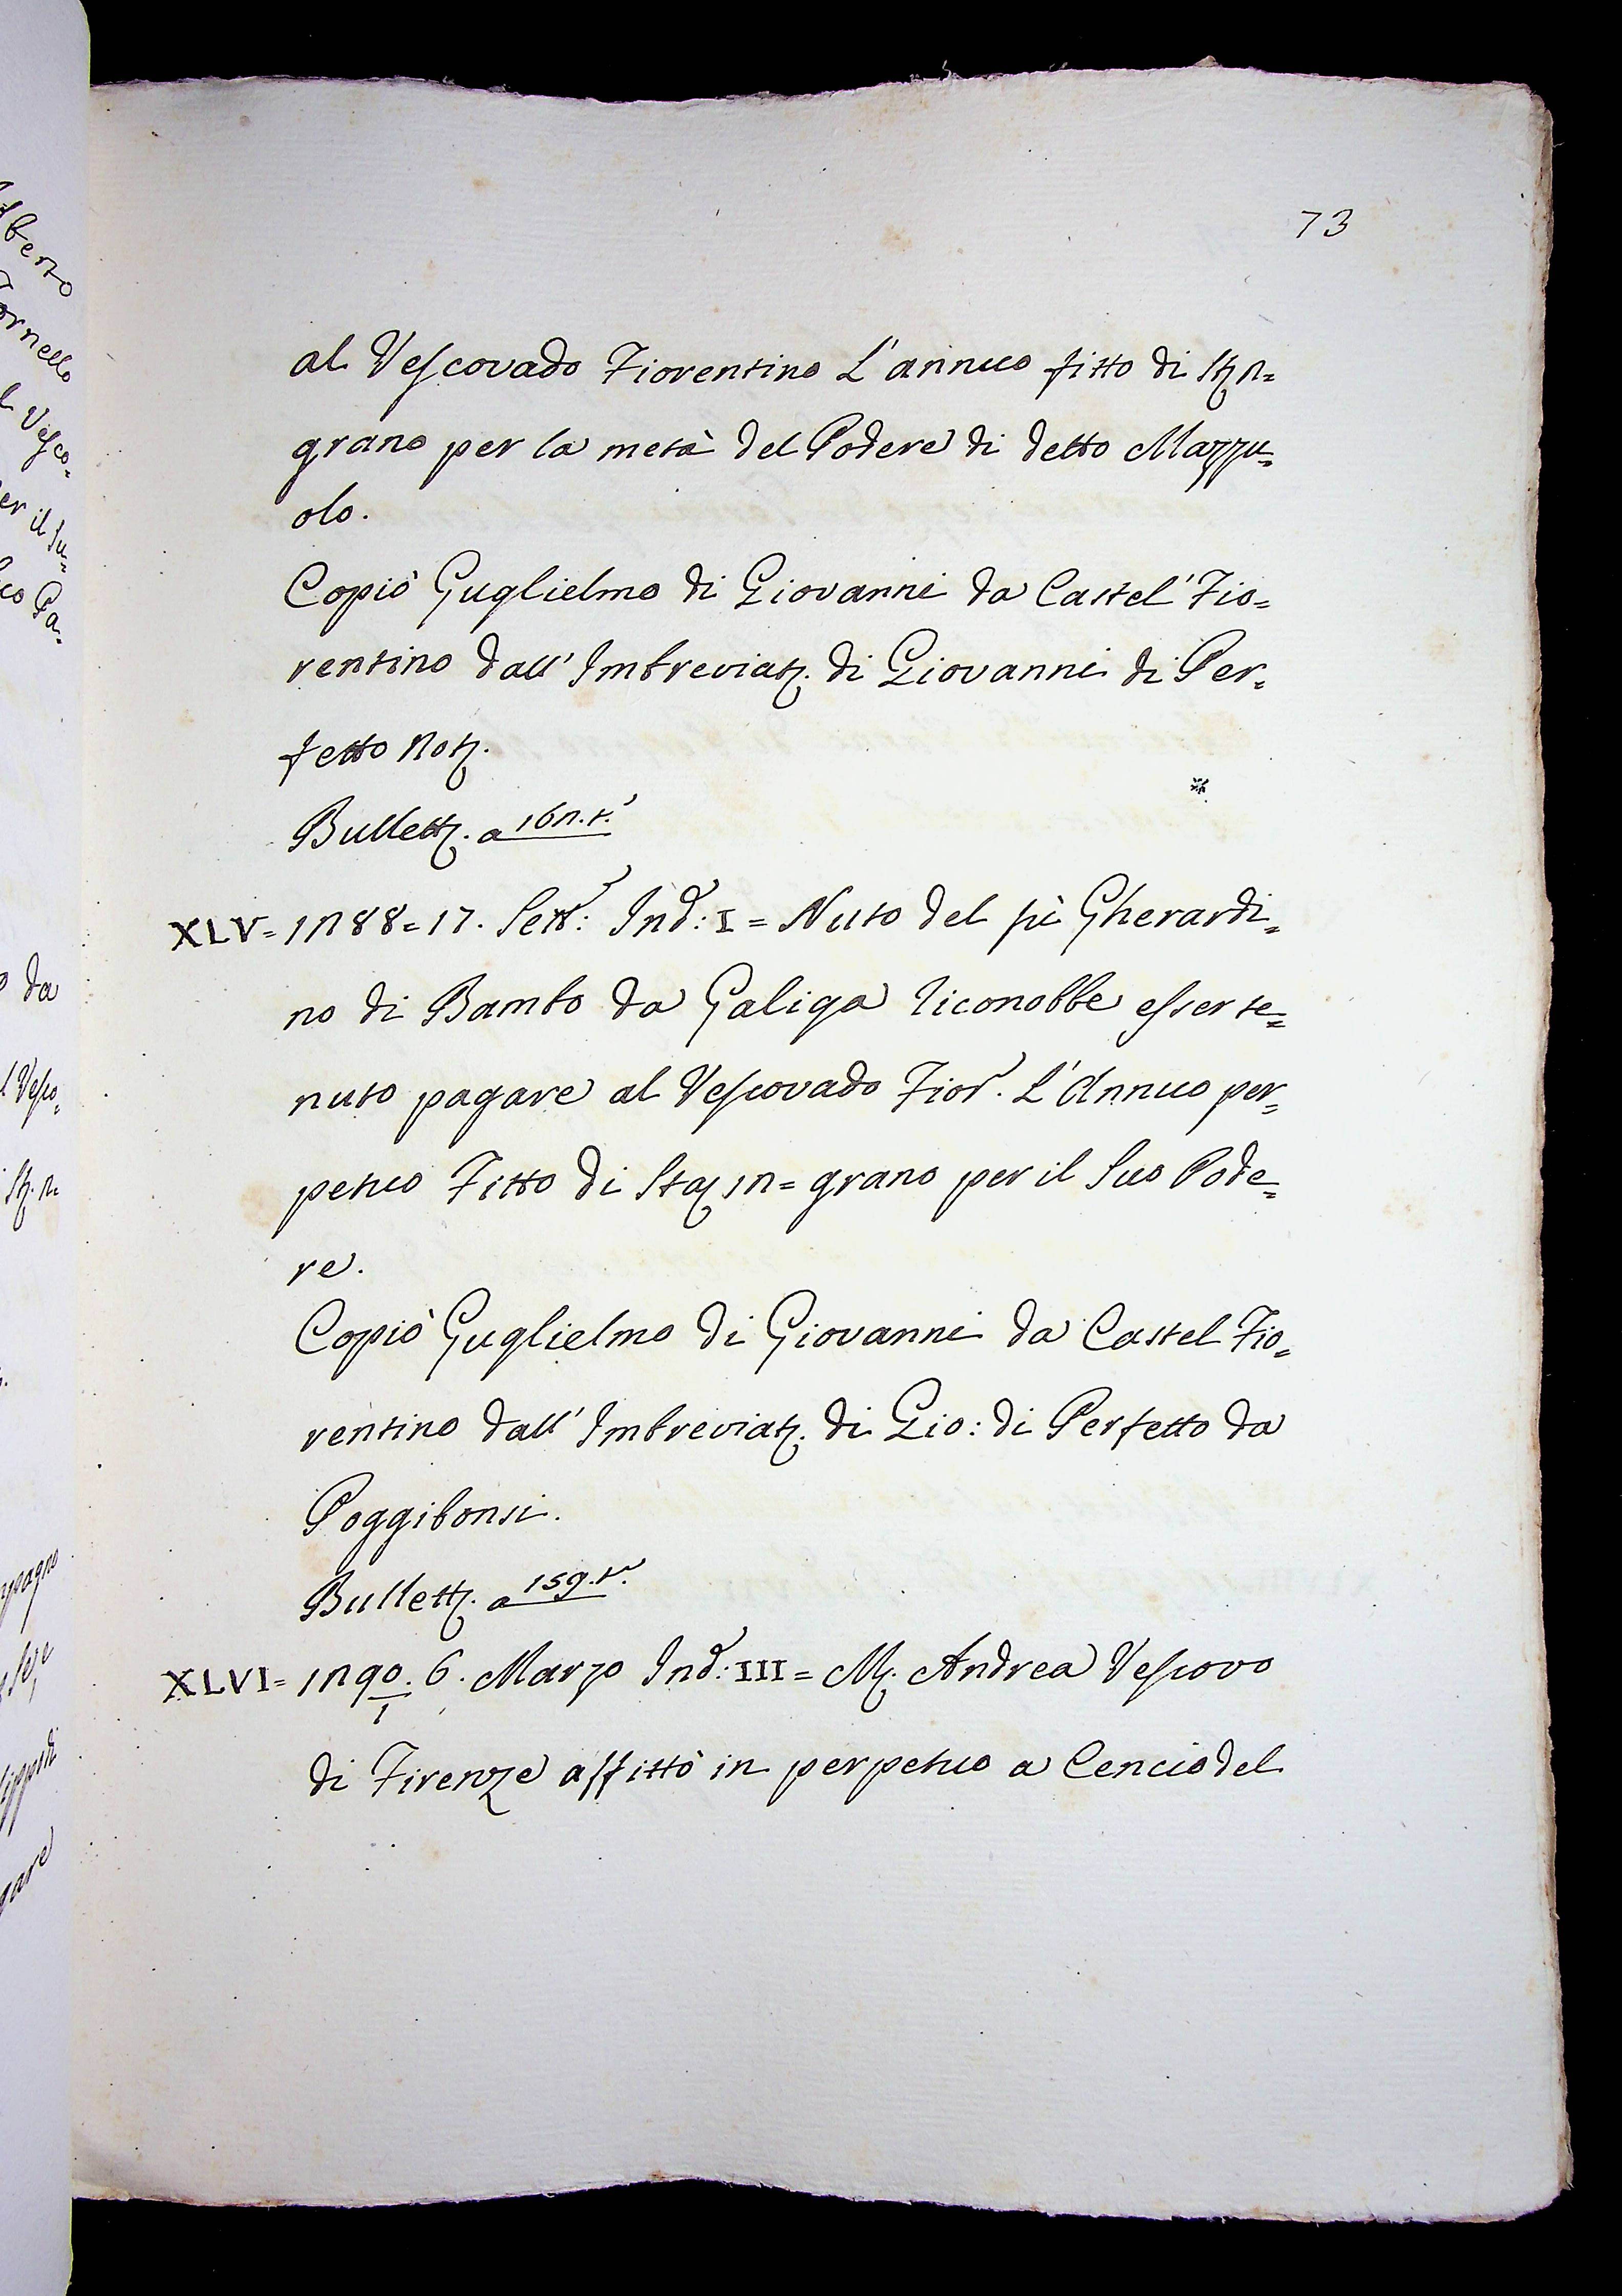 73
al Vescovado Fiorentino L'annuo fitto di Stz 2=
grano per la metà del Podere di detto Mazzu=
olo.
Copiò Guglielmo di Giovanni da Castel' Fio=
rentino dall' Imbreviatz. di Giovanni di Per=
fetto Notz.
Bullettz. a 162. t.
XLV= 1288= 17. Sett: Ind: I = Nuto del qū Gherardi=
no di Bambo da Galiga riconobbe esser te=
nuto pagare al Vescovado Fior. L'Annuo per=
petuo Fitto di Staz 12= grano per il Suo Pode=
re.
Copiò Guglielmo di Giovanni da Castel Fio=
rentino dall' Imbreviatz. di Gio: di Perfetto da
Poggibonsi.
Bullettz. a 159. t.
XLVI= 1290. 6. Marzo Ind: III = Mz. Andrea Vescovo
1
di Firenze affittò in perpetuo a Cencio del